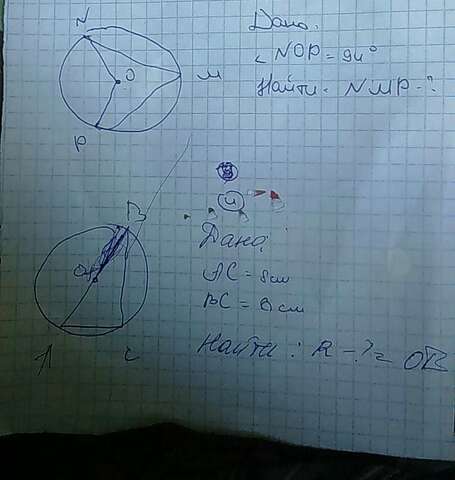 N
Дано.
O
< NOP = 94°
M
Найти - NMP - ?
P
4
B
Дано:
O
AC = 8 см
BC = 8 см
A
C
Найти : R - ? = OB